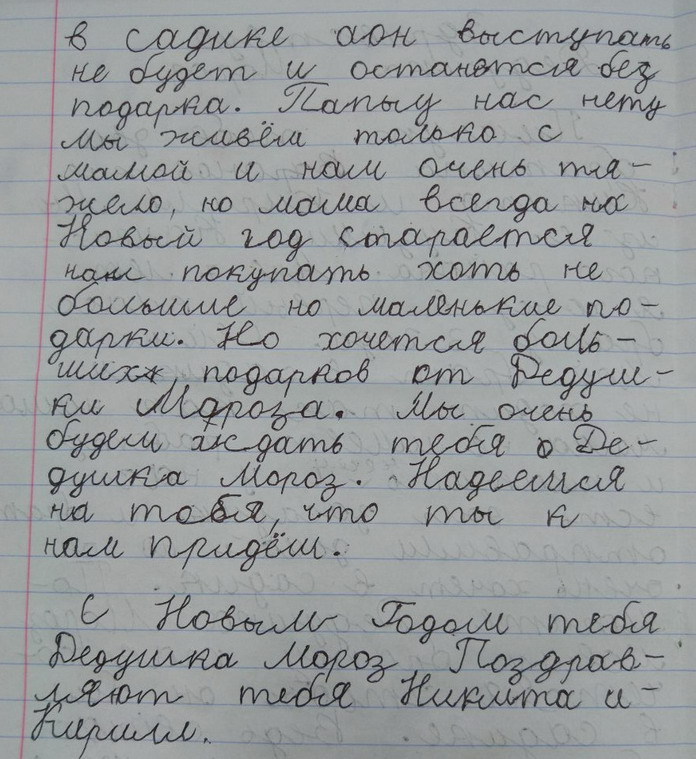 в садике аон выступать
не будет и останется без
подарка. Папыу нас нету
мы живём только с
мамой и нам очень тя-
жело, но мама всегда на
Новый год старается
нам покупать хоть не
большие но маленькие по-
дарки. Но хочется боль-
ших подарков от Дедуш-
ки Мороза. Мы очень
будем ждать тебя о Де-
душка Мороз. Надеемся
на тебя, что ты к
нам придёш.
С Новым Годом тебя
Дедушка Мороз Поздрав-
ляют тебя Никита и-
Кирилл.